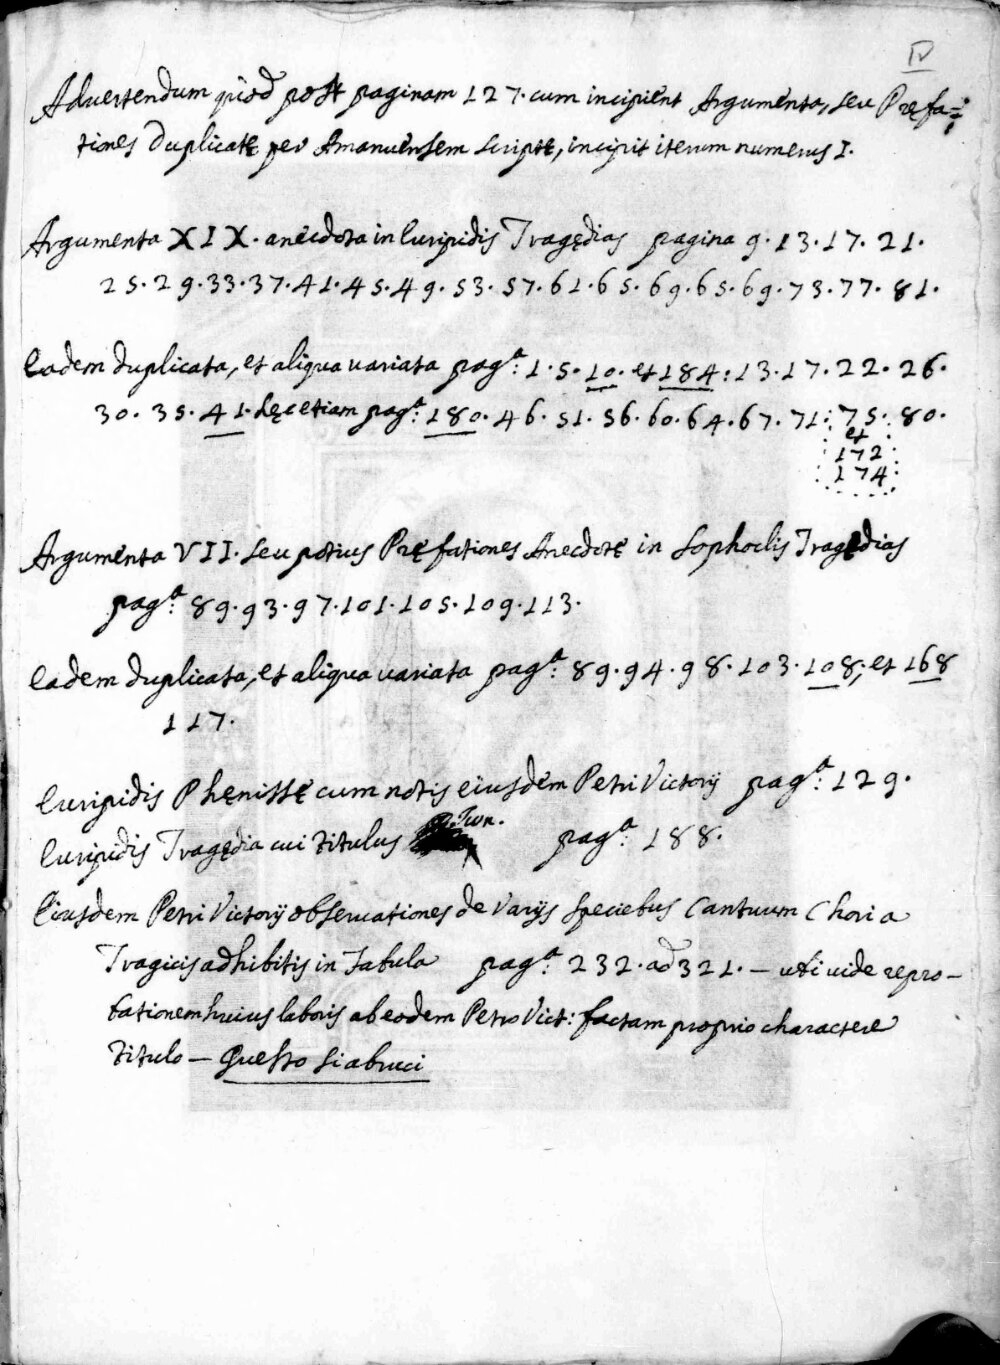 IV
Advertendum quod post paginam 127. cum incipient Argumenta, seu Pręfa=
tiones duplicatę per Amanuensem scriptę, incipit iterum numerus I.
Argumenta XIX. anecdota in Euripidis Tragędias pagina 9. 13. 17. 21.
25. 29. 33. 37. 41. 45. 49. 53. 57. 61. 65. 69. 65. 69. 73. 77. 81.
Eadem duplicata, et aliqua variata pagᵃ: 1. 5. 10. et 184: 13. 17. 22. 26.
30. 35. 41. hęc etiam pagᵃ: 180. 46. 51. 56. 60. 64. 67. 71. 75. 80.
et
172
174
Argumenta VII. seu potius Pręfationes Anecdotę in Sophoclis Tragędias
pagᵃ: 89. 93. 97. 101. 105. 109. 113.
Eadem duplicata, et aliqua variata pagᵃ: 89. 94. 98. 103. 108; et 168
117.
Euripidis Phęnissę cum notis eiusdem Petri Victorij pagᵃ: 129.
Euripidis Tragędia cui titulus Iwn. pagᵃ: 188.
Eiusdem Petri Victorij observationes de Varijs speciebus Cantuum Chori a
Tragicis adhibitis in Fabula pagᵃ: 232. ad 321. — ubi vide repro-
bationem huius laboris ab eodem Petro Vict: factam proprio charactere
titulo — Questo si abruci